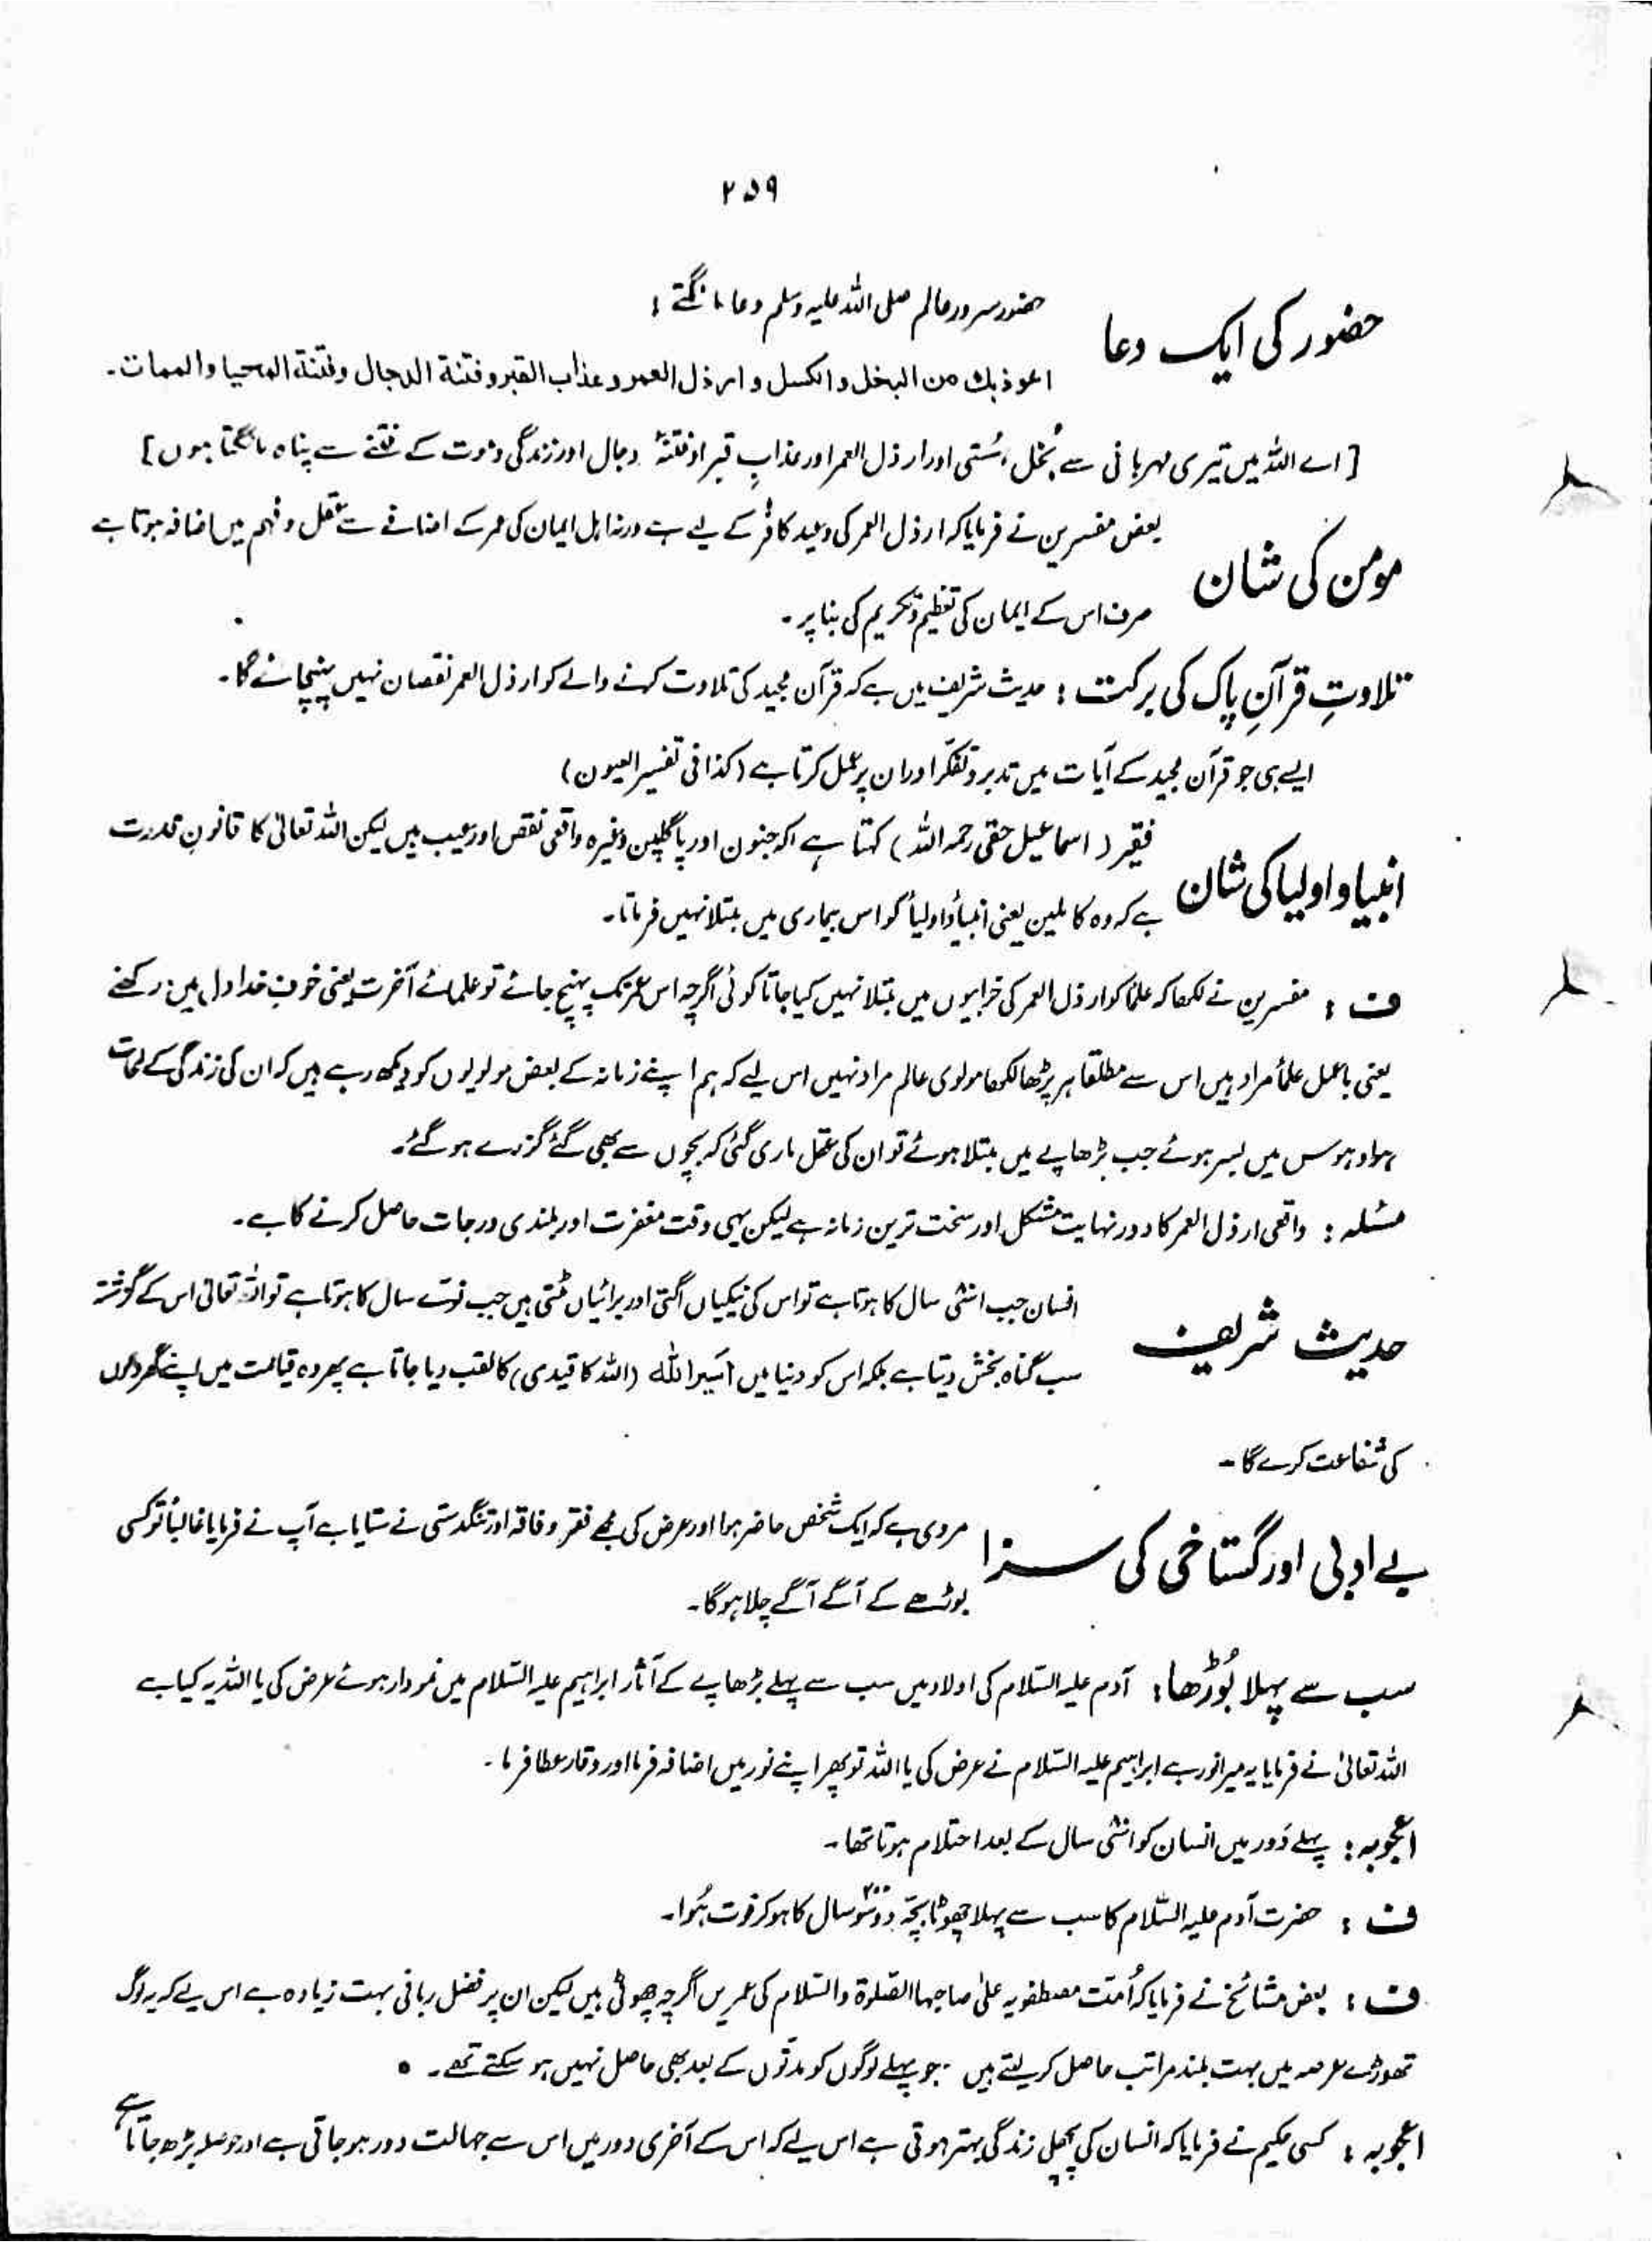 ۲۵۹
حضور کی ایک دعا
حضور سرور عالم صلی اللہ علیہ وسلم دعا مانگتے :
اعوذ بك من البخل والكسل و ارذل العمر و عذاب القبر و فتنة الدجال و فتنة المحيا والممات۔
[اے اللہ میں تیری مہربانی سے بُخل، سُستی اور ارذل العمر اور عذابِ قبر اور فتنۂ دجال اور زندگی و موت کے فتنے سے پناہ مانگتا ہوں]
مومن کی شان
بعض مفسرین نے فرمایا کہ ارذل العمر کی وعید کافر کے لیے ہے ورنہ اہل ایمان کی عمر کے اضافے سے عقل و فہم میں اضافہ ہوتا ہے
صرف اس کے ایمان کی تعظیم و تکریم کی بنا پر۔
تلاوتِ قرآنِ پاک کی برکت : حدیث شریف میں ہے کہ قرآن مجید کی تلاوت کرنے والے کو ارذل العمر نقصان نہیں پہنچائے گا۔
ایسے ہی جو قرآن مجید کے آیات میں تدبر و تفکّر اور ان پر عمل کرتا ہے (کذا فی تفسیر العیون)
انبیا و اولیا کی شان
فقیر (اسماعیل حقی رحمہ اللہ) کہتا ہے کہ جنون اور پاگلپن وغیرہ واقعی نقص اور عیب ہیں لیکن اللہ تعالیٰ کا قانونِ قدرت
ہے کہ وہ کاملین یعنی انبیأ و اولیأ کو اس بیماری میں مبتلا نہیں فرماتا۔
ف : مفسرین نے لکھا کہ علمأ کو ارذل العمر کی خرابیوں میں مبتلا نہیں کیا جاتا کوئی اگرچہ اس عمر تک پہنچ جائے تو علمائے آخرت یعنی خوفِ خدا دل میں رکھنے
یعنی باعمل علمأ مراد ہیں اس سے مطلقاً ہر پڑھا لکھا مولوی عالم مراد نہیں اس لیے کہ ہم اپنے زمانہ کے بعض مولویوں کو دیکھ رہے ہیں کہ ان کی زندگی کے لمحات
ہوا و ہوس میں بسر ہوئے جب بڑھاپے میں مبتلا ہوئے تو ان کی عقل ماری گئی کہ بچوں سے بھی گئے گزرے ہو گئے۔
مسئلہ : واقعی ارذل العمر کا دور نہایت مشکل اور سخت ترین زمانہ ہے لیکن یہی وقت مغفرت اور بلندی درجات حاصل کرنے کا ہے۔
حدیث شریف
انسان جب اسّی سال کا ہوتا ہے تو اس کی نیکیاں اُگتی اور برائیاں مٹتی ہیں جب نوّے سال کا ہوتا ہے تو اللہ تعالیٰ اس کے گزشتہ
سب گناہ بخش دیتا ہے بلکہ اس کو دنیا میں اسیر اللہ (اللہ کا قیدی) کا لقب دیا جاتا ہے پھر وہ قیامت میں اپنے گھر والوں
کی شفاعت کرے گا۔
بے ادبی اور گستاخی کی سزا
مروی ہے کہ ایک شخص حاضر ہوا اور عرض کی مجھے فقر و فاقہ اور تنگدستی نے ستایا ہے آپ نے فرمایا غالباً تو کسی
بوڑھے کے آگے آگے چلا ہوگا۔
سب سے پہلا بُوڑھا : آدم علیہ السّلام کی اولاد میں سب سے پہلے بڑھاپے کے آثار ابراہیم علیہ السّلام میں نمودار ہوئے عرض کی یا اللہ یہ کیا ہے
اللہ تعالیٰ نے فرمایا یہ میرا نور ہے ابراہیم علیہ السّلام نے عرض کی یا اللہ تو پھر اپنے نور میں اضافہ فرما اور وقار عطا فرما۔
اعجوبہ : پہلے دَور میں انسان کو اسّی سال کے بعد احتلام ہوتا تھا۔
ف : حضرت آدم علیہ السّلام کا سب سے پہلا چھوٹا بچّہ دو سَو ۲۰۰ سال کا ہو کر فوت ہُوا۔
ف : بعض مشائخ نے فرمایا کہ اُمّت مصطفویہ علیٰ صاحبہا الصّلوٰۃ والسّلام کی عمریں اگرچہ چھوٹی ہیں لیکن ان پر فضل ربانی بہت زیادہ ہے اس لیے کہ یہ لوگ
تھوڑے عرصہ میں بہت بلند مراتب حاصل کر لیتے ہیں جو پہلے لوگوں کو مدّتوں کے بعد بھی حاصل نہیں ہو سکتے تھے۔
اعجوبہ : کسی حکیم نے فرمایا کہ انسان کی پچھلی زندگی بہتر ہوتی ہے اس لیے کہ اس کے آخری دور میں اس سے جہالت دور ہو جاتی ہے اور حوصلہ بڑھ جاتا ہے